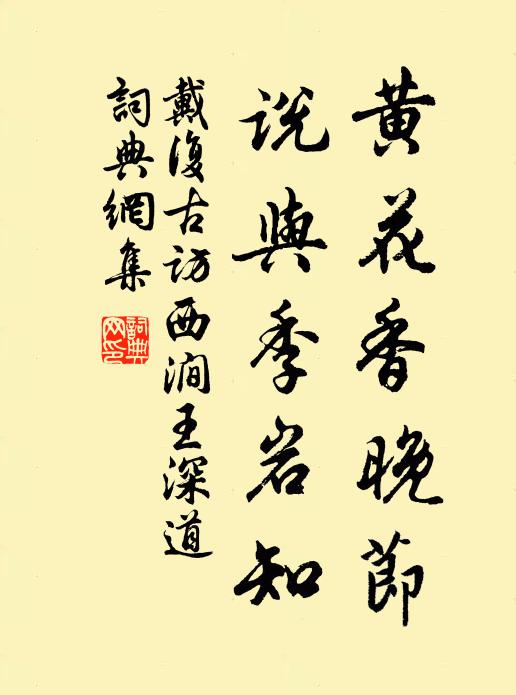 黄花香晚節
說與季岩知
戴復古訪西澗王深道
詞典網集
詞典
网印